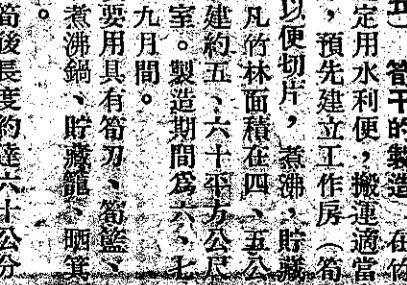 五)筍干的製造 在竹
定用水利便,搬運適當
,預先建立工作房(筍
以便切片,煮沸,貯藏
凡竹林面積在四、五公
建約五、六十平方公尺
室。製造期間爲六、七
九月間。
要用具有筍刀、筍籃、
煮沸鍋、貯藏籠、晒箕
。
筍後長度約達六十公分